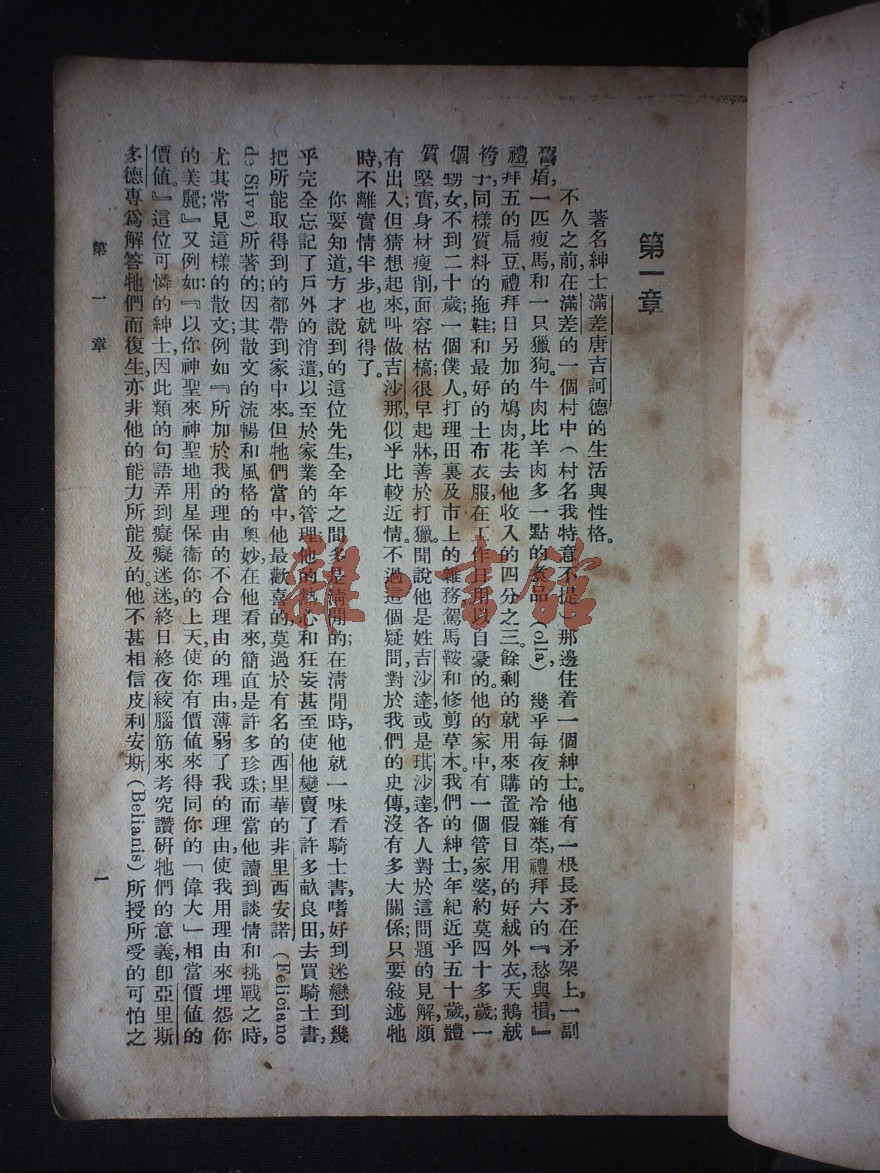 第一章
著名紳士滿差唐吉訶德的生活與性格。
不久之前,在滿差的一個村中(村名我特意不提)那邊住着一個紳士。他有一根長矛在矛架上,一副
舊盾,一匹瘦馬和一只獵狗。牛肉比羊肉多一點的煮品(olla)幾乎每夜的冷雜菜,禮拜六的『愁與損,』
禮拜五的扁豆,禮拜日另加的鳩肉,花去他收入的四分之三。餘剩的就用來購置假日用的好絨外衣,天鵝絨
袴子,同樣質料的拖鞋;和最好的土布衣服,在工作日用以自豪的。他的家中,有一個管家婆,約莫四十多歲;一
個甥女不到二十歲;一個僕人打理田裏及市上的雜務,駕馬鞍和修剪草木。我們的紳士年紀近乎五十歲,體
質堅實,身材瘦削,面容枯槁;很早起牀,善於打獵。聞說他是姓吉沙達,或是琪沙達,各人對於這問題的見解,頗
有出入;但猜想起來,叫做吉沙那,似乎比較近情。不過這個疑問,對於我們的史傳,沒有多大關係;只要敍述牠
時,不離實情半步,也就得了。
你要知道,方才說到的這位先生,全年之間多是清閒的;在清閒時,他就一味看騎士書,嗜好到迷戀到幾
乎完全忘記了戶外的消遣,以至於家業的管理;他的熱心和狂妄,甚至使他變賣了許多畝良田,去買騎士書,
把所能取得到的都帶到家中來。但牠們當中,他最歡喜的,莫過於有名的西里華的非里西安諾(Feliciano
de Silva)所著的;因其散文的流暢和風格的奧妙,在他看來,簡直是許多珍珠;而當他讀到談情和挑戰之時,
尤其常見這樣的散文;例如『所加於我的理由的不合理由的理由,薄弱了我的理由,使我用理由來埋怨你
的美麗;』又例如:『以你神聖來神聖地用星保衞你的上天,使你有價值來得同你的「偉大」相當價值的
價值。』這位可憐的紳士,因此類的句語弄到癡癡迷迷,終日終夜絞腦筋來考究讚硏牠們的意義,卽亞里斯
多德專爲解答牠們而復生,亦非他的能力所能及的。他不甚相信皮利安斯(Belianis)所授所受的可怕之
第一章
一
雜·書館